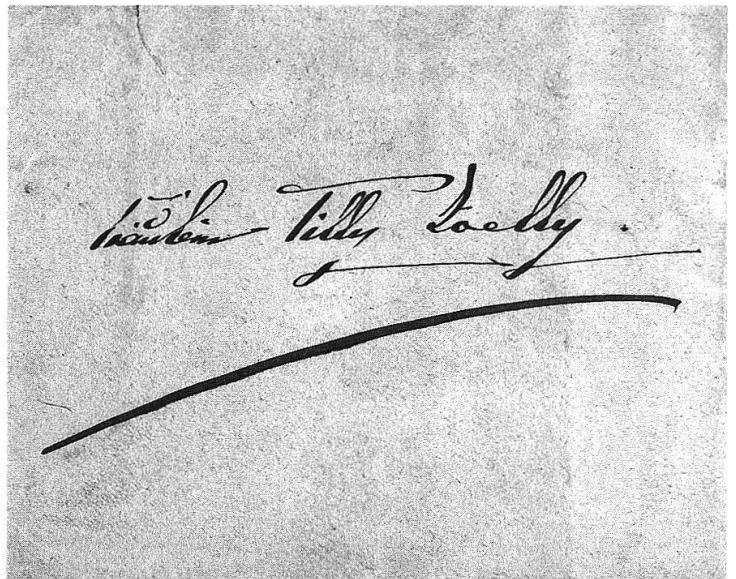 Fräulein Tilly Zoelly.